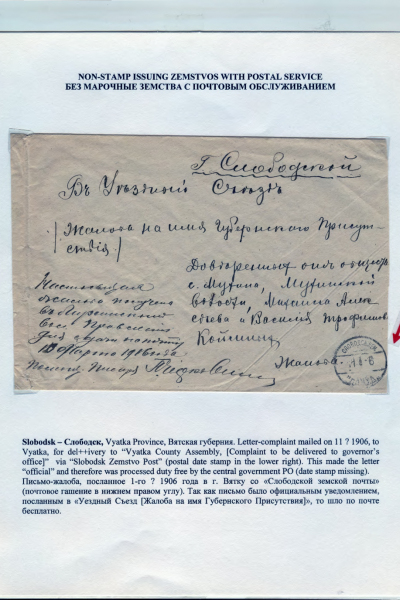 NON-STAMP ISSUING ZEMSTVOS WITH POSTAL SERVICE
БЕЗ МАРОЧНЫЕ ЗЕМСТВА С ПОЧТОВЫМ ОБСЛУЖИВАНИЕМ
Г. Слободской
Въ Уѣздный Съѣздъ
/Жалоба на имя Губернскаго Присут-
ствія/
Довѣренныхъ отъ обществ
с. Мухино, Мухинской
волости, Михаила Алек
и Василія Трофимова
Настоящая
жалоба получена
въ
Вол. Правленіи
для сдачи на почту
Марта 1906 года
Жалоба
Slobodsk – Слободск, Vyatka Province, Вятская губерния. Letter-complaint mailed on 11 ? 1906, to
Vyatka, for del++ivery to “Vyatka County Assembly, [Complaint to be delivered to governor’s
office]” via “Slobodsk Zemstvo Post” (postal date stamp in the lower right). This made the letter
“official” and therefore was processed duty free by the central government PO (date stamp missing).
Письмо-жалоба, посланное 1-го ? 1906 года в г. Вятку со «Слободской земской почты»
(почтовое гашение в нижнем правом углу). Так как письмо было официальным уведомлением,
посланным в «Уездный Съезд [Жалоба на имя Губернского Присутствия]», то шло по почте
бесплатно.